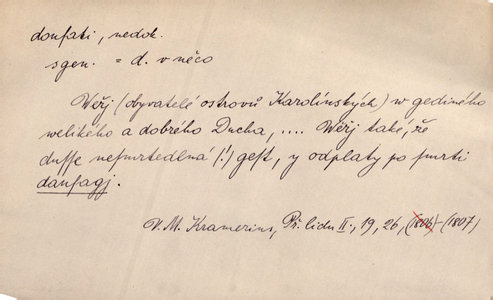 doufati, nedok.
sgen. = d. v něco
Wěřj (obyvatelé ostrovů Karolínských) w gediného
welikého a dobrého Ducha, .... Wěřj také, že
dusse nesmrtedlná (!) gest, y odplaty po smrti
daufagj.
V. M. Kramerius, Př. lidu II., 19, 26, (1806) (1807)